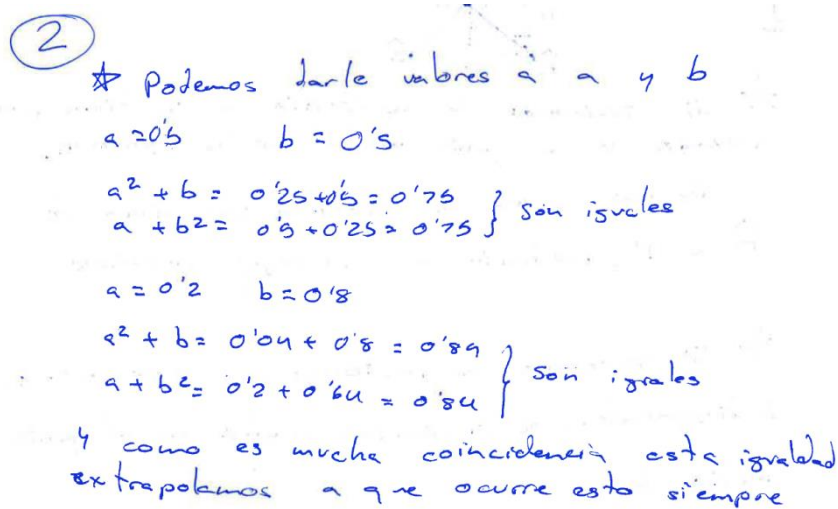 2
☆ Podemos darle valores a a y b
a = 0'5 b = 0'5
a² + b = 0'25 + 0'5 = 0'75
a + b² = 0'5 + 0'25 = 0'75 } son iguales
a = 0'2 b = 0'8
a² + b = 0'04 + 0'8 = 0'84
a + b² = 0'2 + 0'64 = 0'84 } son iguales
y como es mucha coincidencia esta igualdad
extrapolamos a que ocurre esto siempre